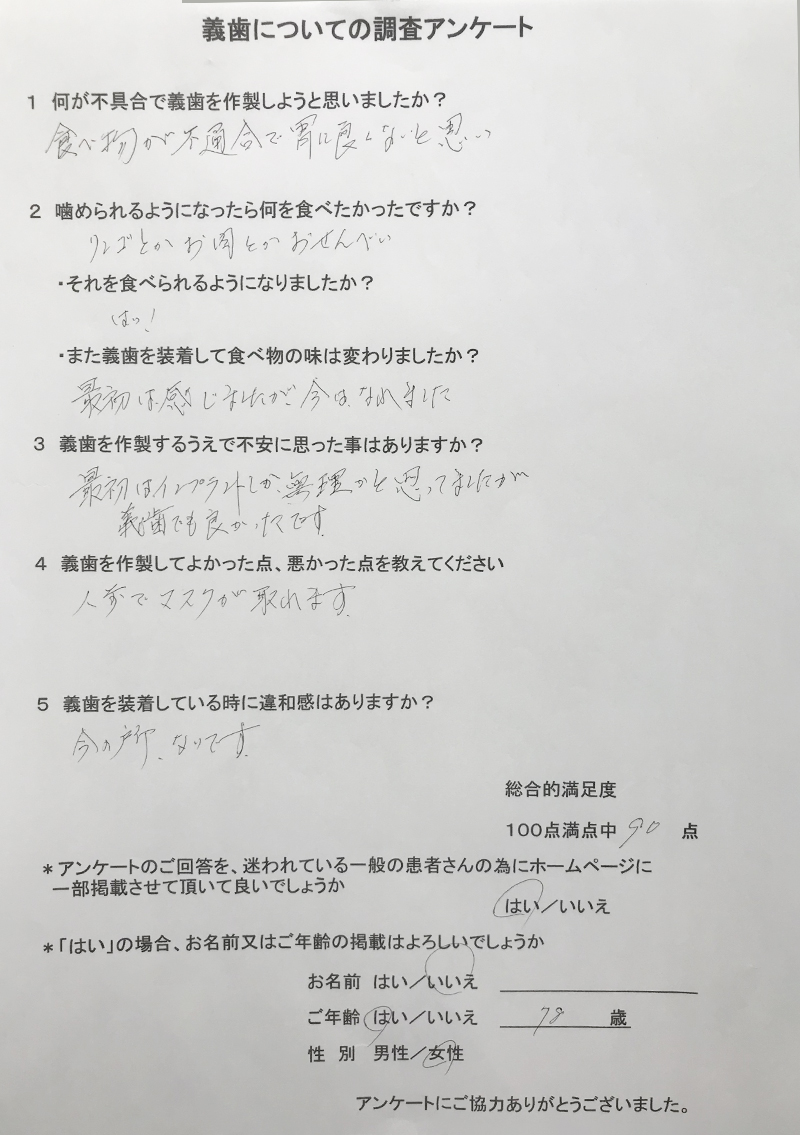 義歯についての調査アンケート
1 何が不具合で義歯を作製しようと思いましたか？
食べ物が不適合で胃に良くないと思い
2 噛められるようになったら何を食べたかったですか？
リンゴとかお肉とかおせんべい
・それを食べられるようになりましたか？
はい！
・また義歯を装着して食べ物の味は変わりましたか？
最初は感じましたが、今は、なれました
3 義歯を作製するうえで不安に思った事はありますか？
最初はインプラントしか、無理かと思ってましたが
義歯でも良かったです。
4 義歯を作製してよかった点、悪かった点を教えてください
人前でマスクが取れます。
5 義歯を装着している時に違和感はありますか？
今の所、ないです。
総合的満足度
100点満点中 90 点
＊アンケートのご回答を、迷われている一般の患者さんの為にホームページに
一部掲載させて頂いて良いでしょうか
はい／いいえ
＊「はい」の場合、お名前又はご年齢の掲載はよろしいでしょうか
お名前 はい／いいえ
ご年齢 はい／いいえ 78 歳
性 別 男性／女性
アンケートにご協力ありがとうございました。